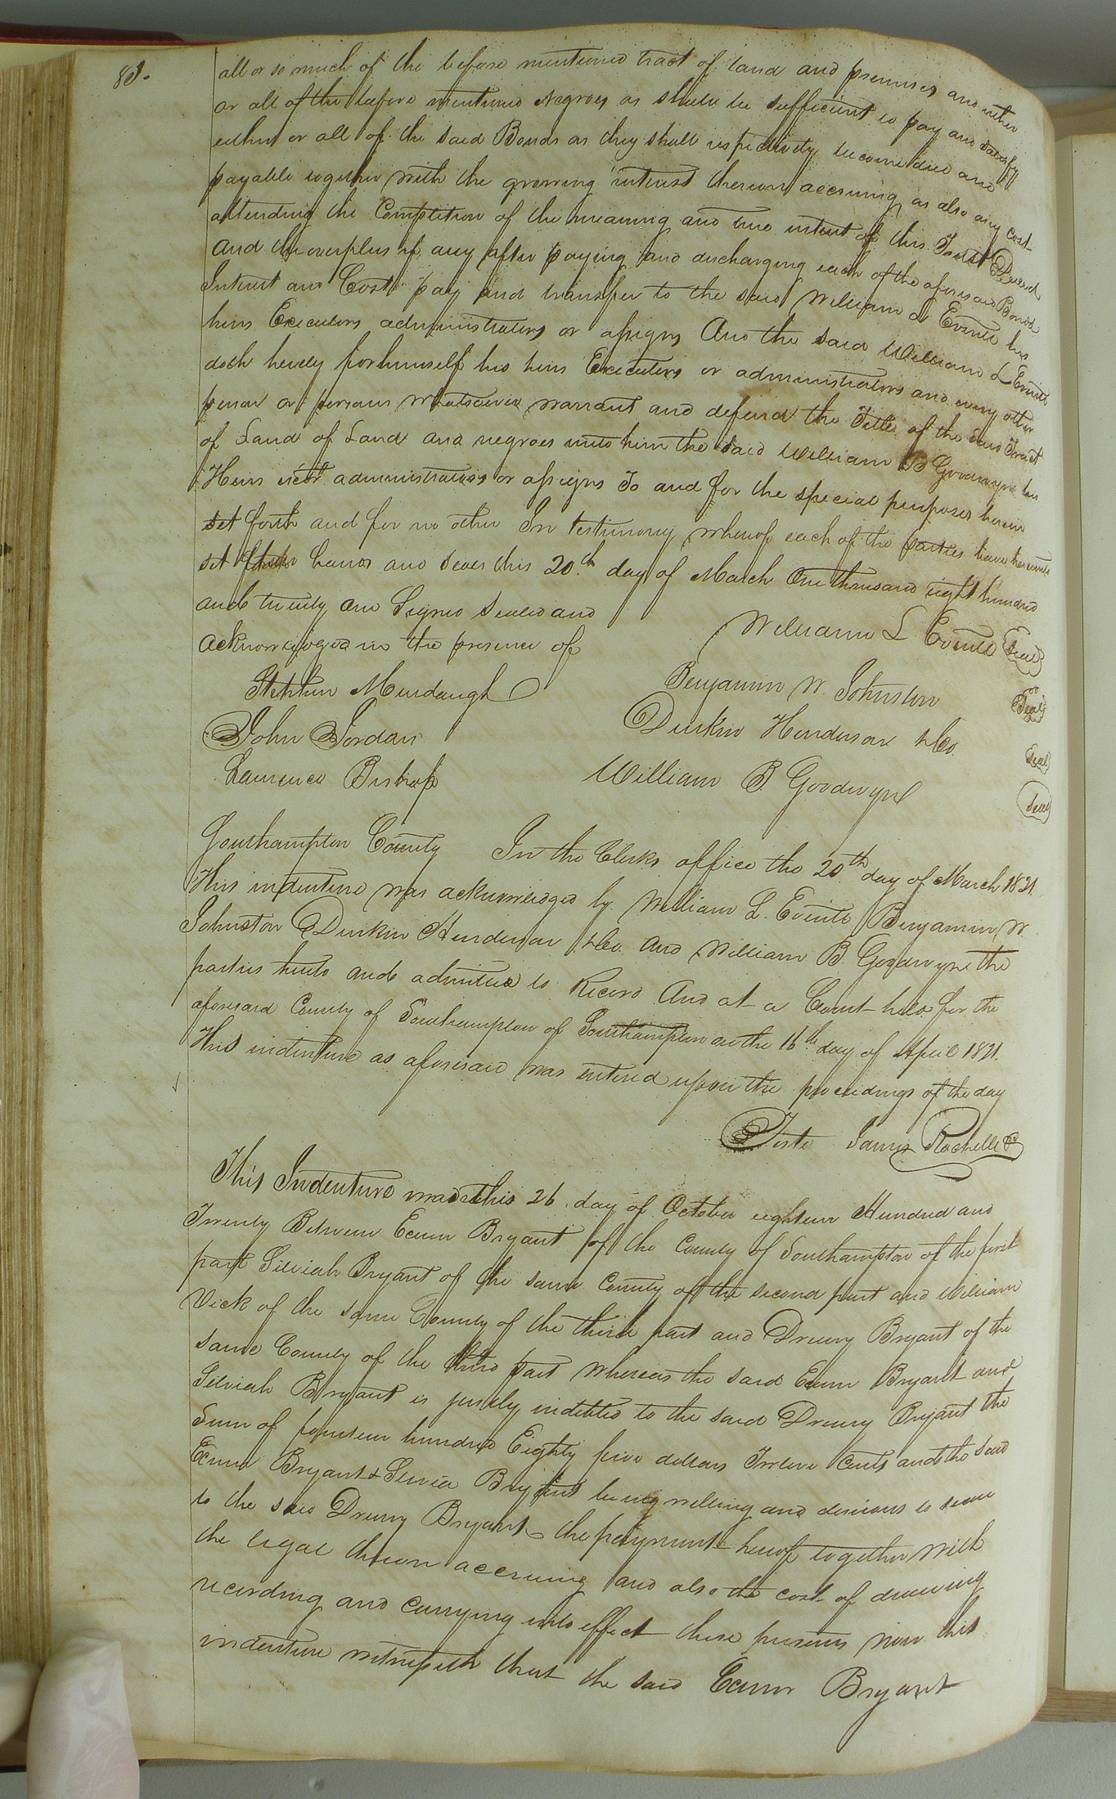 83.
all or so much of the before mentioned tract of land and premises and either
or all of the before mentioned Negroes as shall be sufficient to pay and satisfy
either or all of the said Bonds as they shall respectively become due and
payable together with the growing interest thereon accruing as also any cost
attending the Completion of the meaning and true intent of this Trust Deed
And the overplus if any after paying and discharging each of the aforesaid Bonds
Interest and Cost pay and transfer to the said William L Everitt his
heirs Executors administrators or assigns And the said William L Everitt
doth hereby for himself his heirs Executors or administrators and every other
person or persons whatsoever warrant and defend the Title of the said Tract
of Land of Land and negroes unto him the said William B Goodwyn his
Heirs administrators or assigns To and for the special purposes herein
set forth and for no other In testimony whereof each of the parties have hereunto
set their hands and seals this 20th day of March One thousand eight hundred
and twenty one Signed Sealed and
acknowledged in the presence of
William L Everitt Seal
Stephen Murdaugh
Benjamin W Johnston Seal
John Jordan
Durkin Henderson & Co. Seal
Laurence Bishop
William B Goodwyn Seal
Southampton County In the Clerks office the 20th day of March 1821.
This indenture was acknowledged by William L. Everitt Benjamin W
Johnston Durkin Henderson & Co. and William B Goodwyn the
parties hereto and admitted to Record And at a Court held for the
aforesaid County of Southampton of Southampton on the 16th day of April 1821.
This indenture as aforesaid was entered upon the proceedings of the day
Teste James Rochelle
This Indenture made this 26 day of October eighteen Hundred and
Twenty Between Bryant of the County of Southampton of the first
part Silviah Bryant of the same County of the second part and William
Vick of the same County of the third part and Drewry Bryant of the
same County of the third part Whereas the said Bryant and
Silviah Bryant is justly indebted to the said Drewry Bryant the
Sum of fourteen hundred Eighty five dollars Twelve Cents and the said
Bryant & Bryant being willing and desirous to secure
to the said Drewry Bryant the payment hereof together with
the legal thereon accruing and also the cost of drawing
recording and carrying into effect these presents now this
indenture witnesseth that the said Bryant